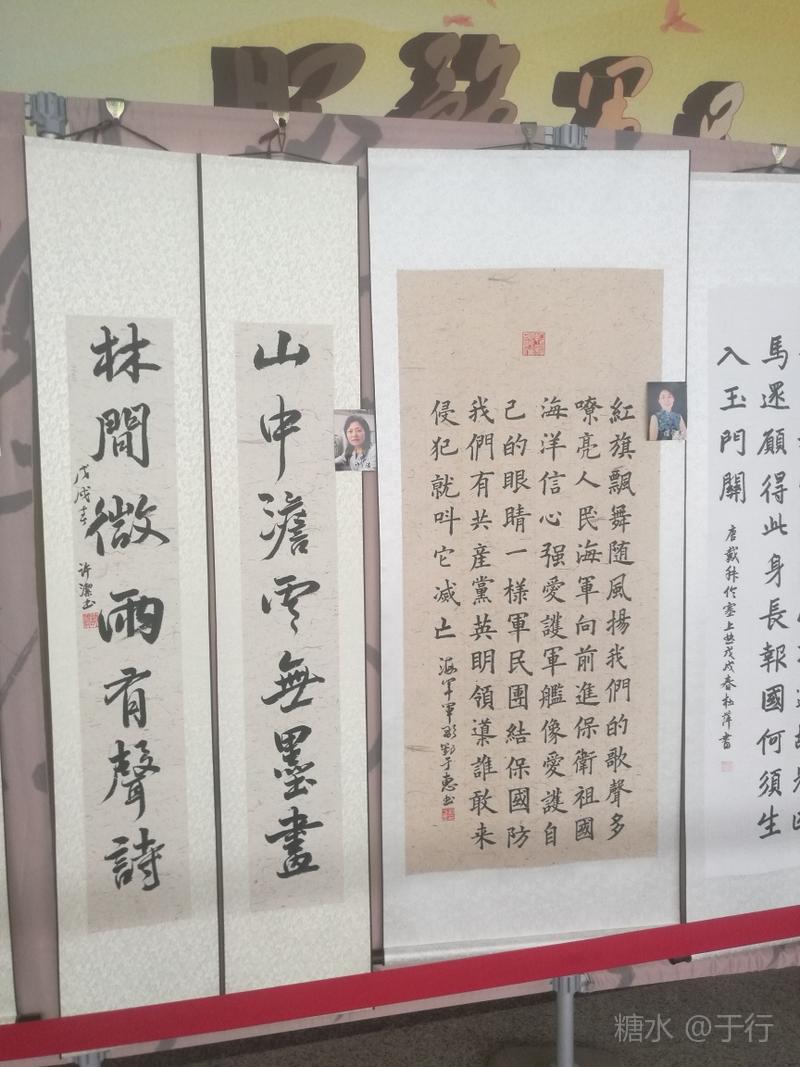 馬還願得此身長報國何須生
入玉門關
唐戴叔伦塞上曲戊戌春杜萍書
紅旗飄舞随風揚我們的歌聲多
嘹亮人民海軍向前進保衛祖國
海洋信心强愛護軍艦像愛護自
己的眼睛一樣軍民團結保國防
我們有共産黨英明領導誰敢来
侵犯就叫它减亡
山中澹雲無墨畫
林間微雨有聲詩
戊戌春
許潔书
糖水 @于行